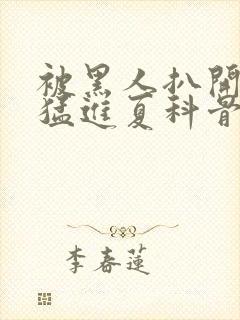 被黑人扒開
猛進夏科骨
李春蓮